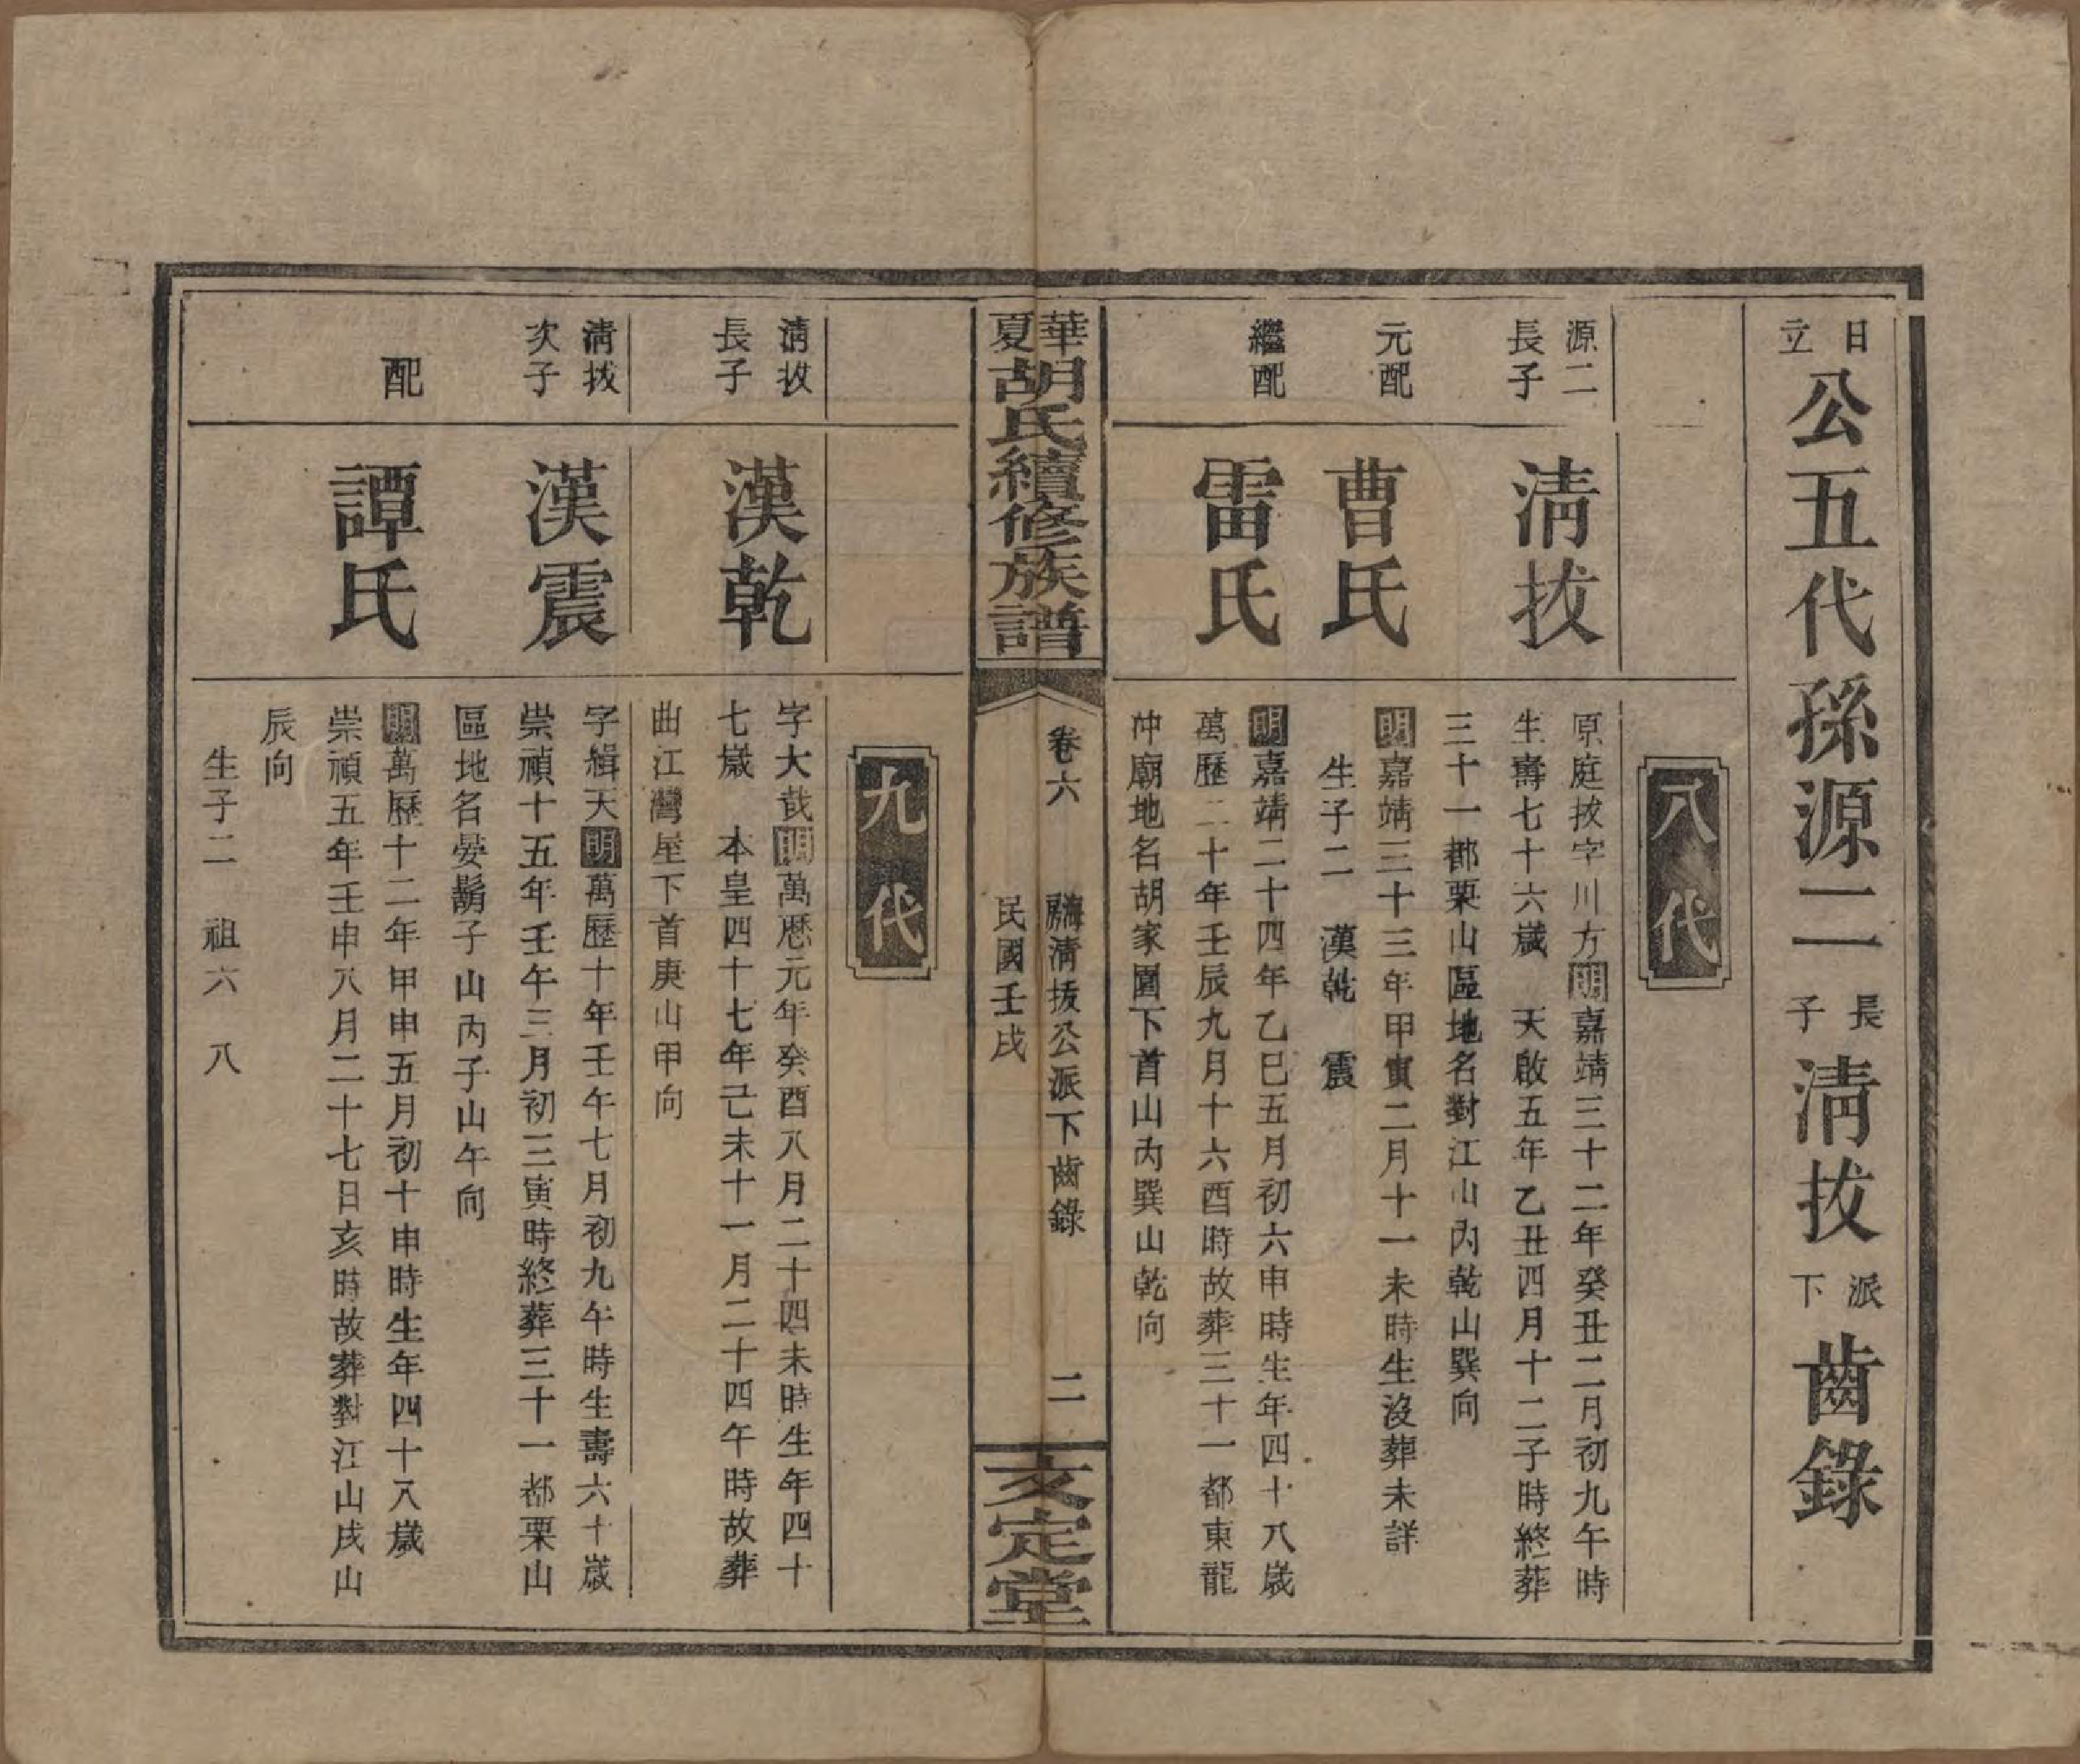 日立公五代孫源二長子淸拔派下齒錄
八代
源二長子
淸拔
原庭拔字川方明嘉靖三十二年癸丑二月初九午時
生壽七十六歲　天啟五年乙丑四月十二子時終葬
三十一都栗山區地名對江山內乾山巽向
元配
曹氏
明嘉靖三十三年甲寅二月十一未時生沒葬未詳
生子二　漢乾　震
繼配
雷氏
明嘉靖二十四年乙巳五月初六申時生年四十八歲
萬歷二十年壬辰九月十六酉時故葬三十一都東龍
冲廟地名胡家園下首山內巽山乾向
華夏胡氏續修族譜
卷六
海房淸拔公派下齒錄
民國壬戌
二
文定堂
九代
淸拔長子
漢乾
字大哉明萬歴元年癸酉八月二十四未時生年四十
七歲　本皇四十七年己未十一月二十四午時故葬
曲江灣屋下首庚山甲向
淸拔次子
漢震
字緝天明萬歷十年壬午七月初九午時生壽六十歲
崇禎十五年壬午三月初三寅時終葬三十一都栗山
區地名晏鬍子山內子山午向
配
譚氏
明萬歷十二年甲申五月初十申時生年四十八歲
崇禎五年壬申八月二十七日亥時故葬對江山戌山
辰向
生子二　祖六　八